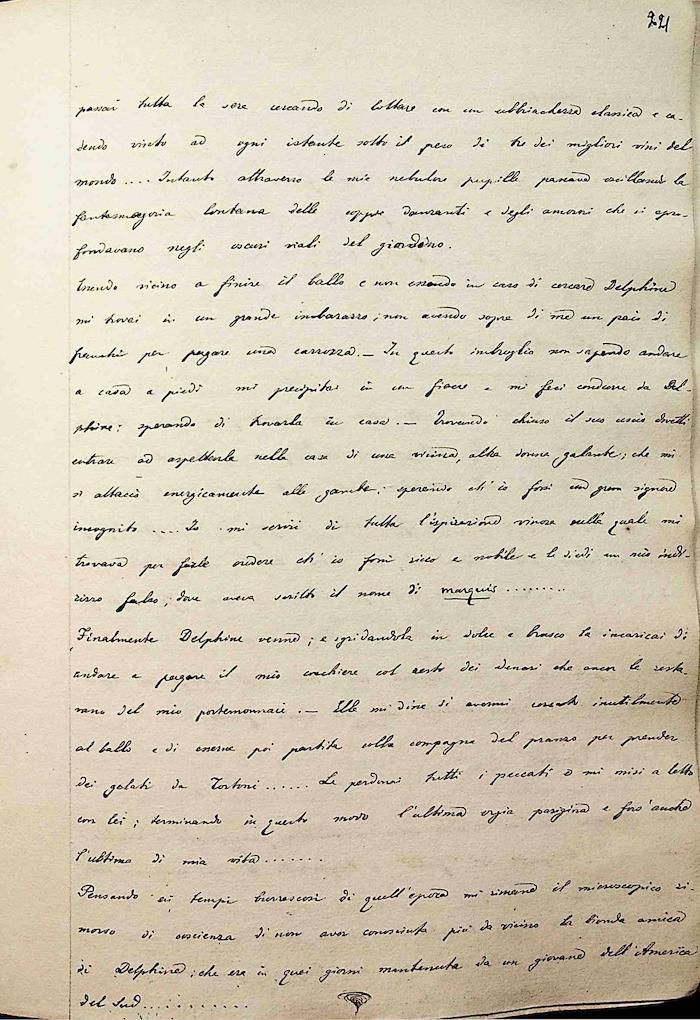 221
passai tutta la sera cercando di lottare con un ubbriachezza classica e ca-
dendo vinto ad ogni istante sotto il peso di tre dei migliori vini del
mondo.... Intanto attraverso le mie nebulose pupille passava oscillando la
fantasmagoria lontana delle coppie danzanti e degli amorini che si spro-
fondavano negli oscuri viali del giardino.
Essendo vicino a finire il ballo e non essendo in caso di cercare Delphine
mi trovai in un grande imbarazzo; non avendo sopra di me un paio di
franchi per pagare una carrozza.— In questo imbroglio non sapendo andare
a casa a piedi mi precipitai in un fiacre e mi feci condurre da Del-
phine: sperando di trovarla in casa.— Trovando chiuso il suo uscio dovetti
entrare ad aspettarla nella casa di una vicina, altra donna galante; che mi
si attaccò energicamente alle gambe; sperando ch'io fossi un gran signore
incognito.... Io mi servii di tutta l'ispirazione vinosa nella quale mi
trovava per farle credere ch'io fossi ricco e nobile e le diedi un mio indi-
rizzo falso; dove aveva scritto il nome di marquis........
Finalmente Delphine venne; e sgridandola in dolce e brusco la incaricai di
andare a pagare il mio cocchiere col resto dei denari che ancor le resta-
vano del mio portemonnaie.— Ella mi disse di avermi cercato inutilmente
al ballo e di essersi poi partita colla compagna del pranzo per prender
dei gelati da Tortoni...... Le perdonai tutti i peccati e mi misi a letto
con lei; terminando in questo modo l'ultima orgia parigina e fors'anche
l'ultima di mia vita.......
Pensando ai tempi burrascosi di quell'epoca mi rimane il microscopico ri-
morso di coscienza di non aver conosciuta più da vicino la bionda amica
di Delphine; che era in quei giorni mantenuta da un giovane dell'America
del Sud...........